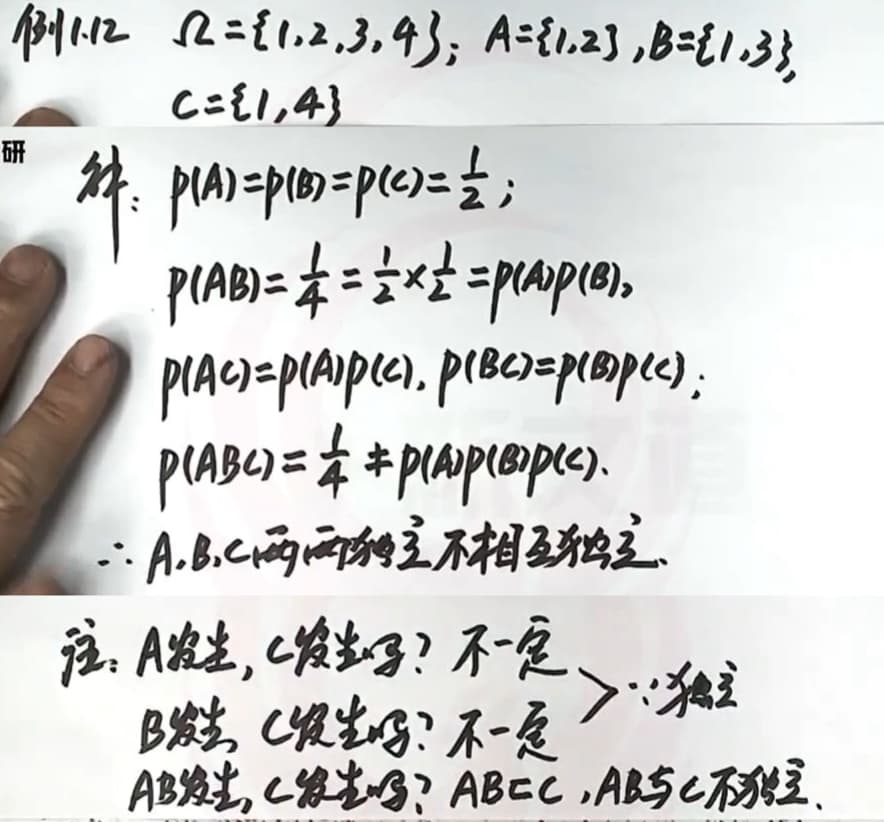 例1.12 Ω={1,2,3,4}; A={1,2},B={1,3},
C={1,4}
研
解: P(A)=P(B)=P(C)=1/2;
P(AB)=1/4=1/2×1/2=P(A)P(B),
P(AC)=P(A)P(C), P(BC)=P(B)P(C);
P(ABC)=1/4≠P(A)P(B)P(C).
∴ A.B.C两两独立不相互独立.
注: A发生, C发生吗? 不一定
>∵独立
B发生, C发生吗? 不一定
AB发生, C发生吗? AB⊂C, AB与C不独立.